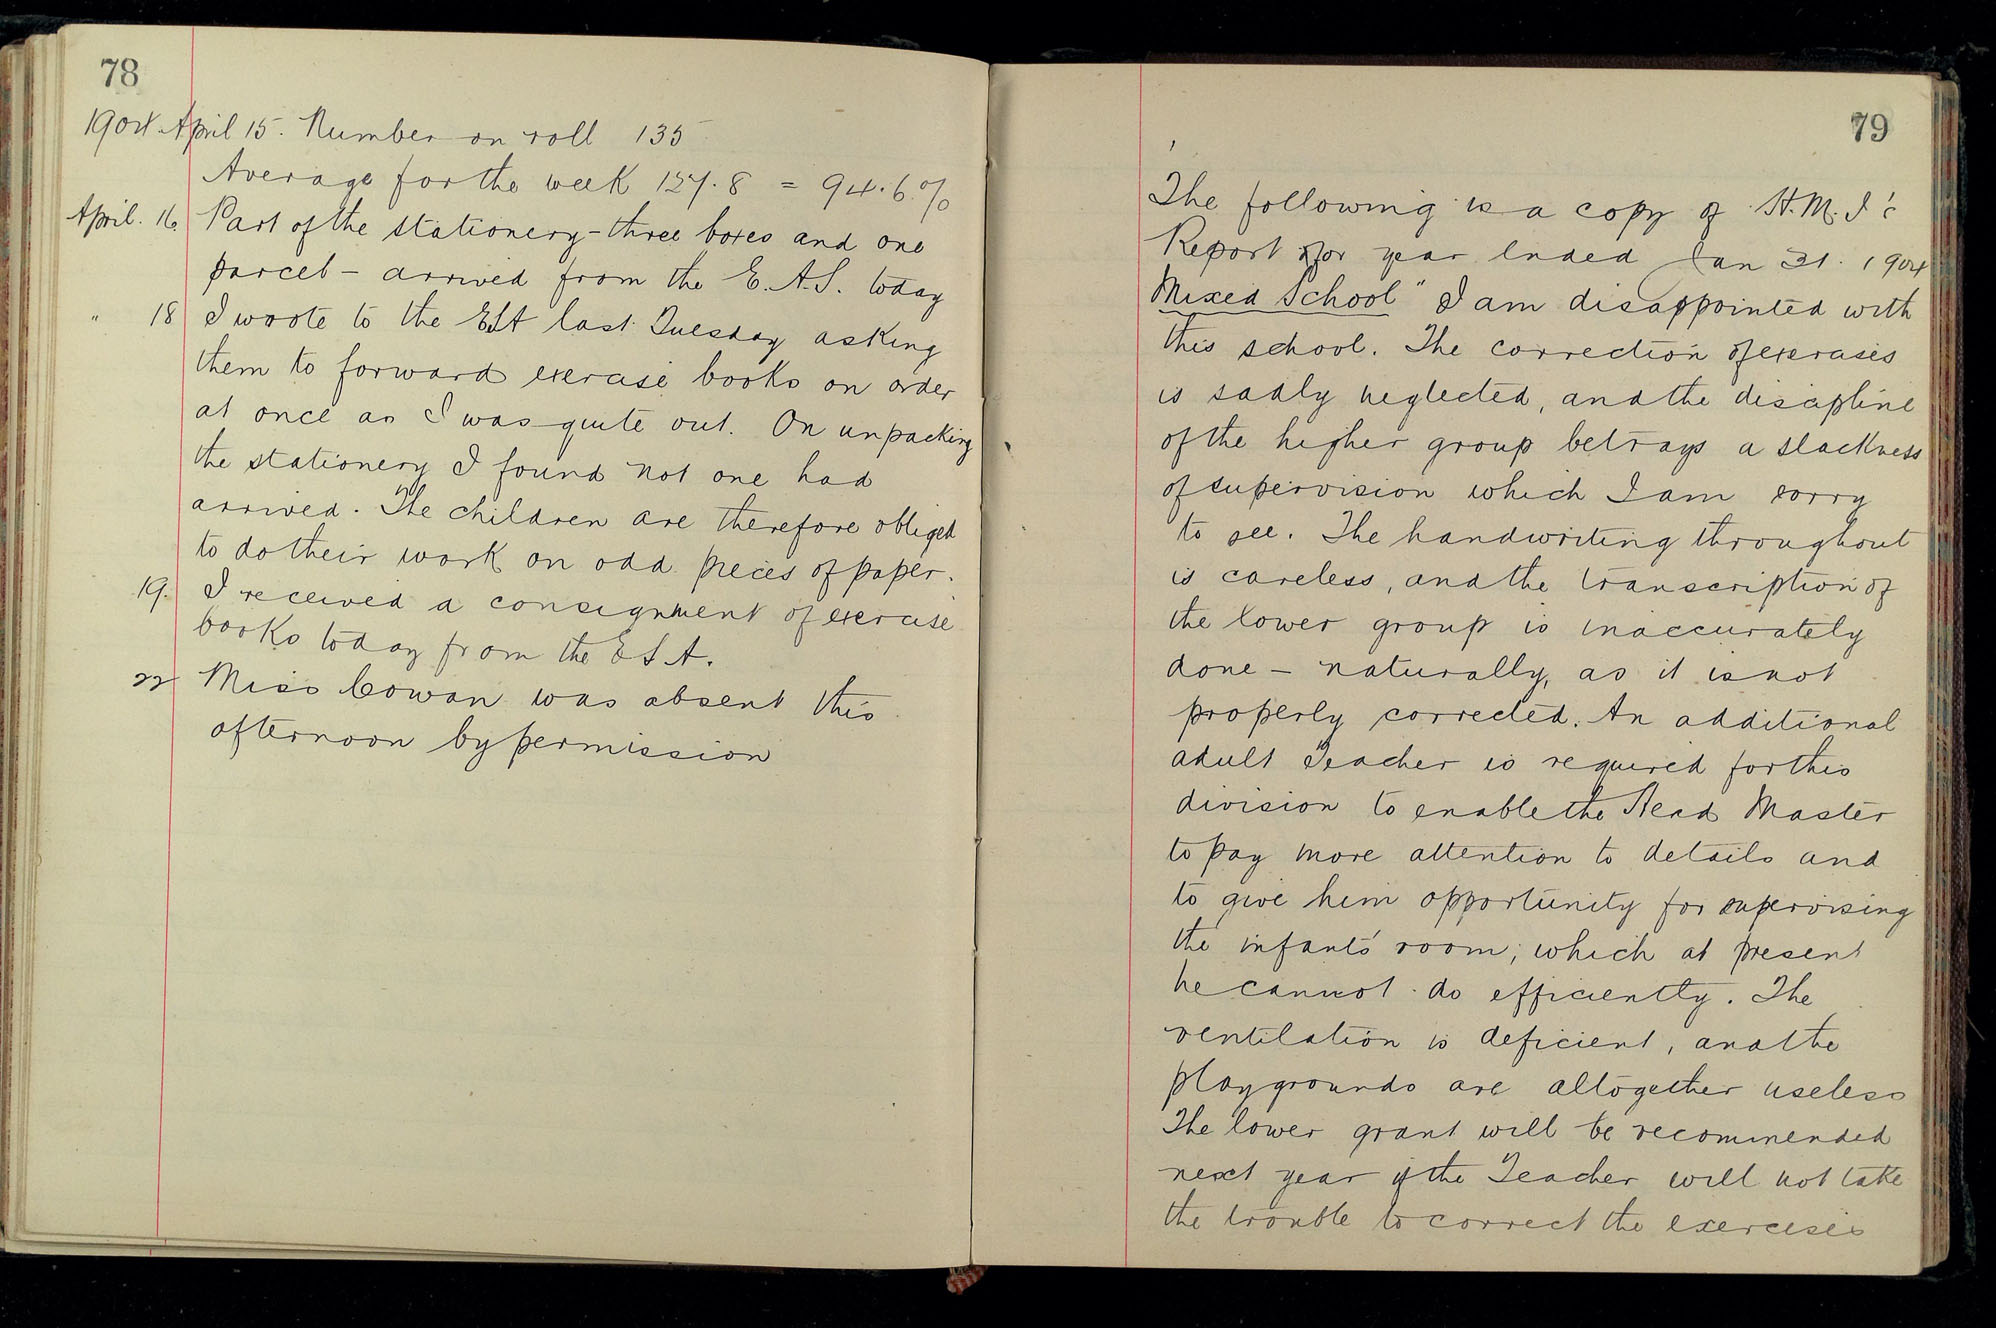 78
1904 April 15. Number on roll 135
Average for the week 127.8 = 94.6%
April. 16. Part of the stationery - three boxes and one
parcel - arrived from the E.S.A. today
" 18 I wrote to the ESA last Tuesday asking
them to forward exercise books on order
at once as I was quite out. On unpacking
the stationery I found not one had
arrived. The children are therefore obliged
to do their work on odd pieces of paper.
19. I received a consignment of exercise
books today from the E S A.
22 Miss Cowan was absent this
afternoon by permission
79
The following is a copy of H.M.I's
Report for year ended Jan 31. 1904
Mixed School " I am disappointed with
this school. The correction of exercises
is sadly neglected, and the discipline
of the higher group betrays a slackness
of supervision which I am sorry
to see. The handwriting throughout
is careless, and the transcription of
the lower group is inaccurately
done - naturally, as it is not
properly corrected. An additional
adult Teacher is required for this
division to enable the Head Master
to pay more attention to details and
to give him opportunity for supervising
the infants' room, which at present
he cannot do efficiently. The
ventilation is deficient, and the
playgrounds are altogether useless
The lower grant will be recommended
next year if the Teacher will not take
the trouble to correct the exercises